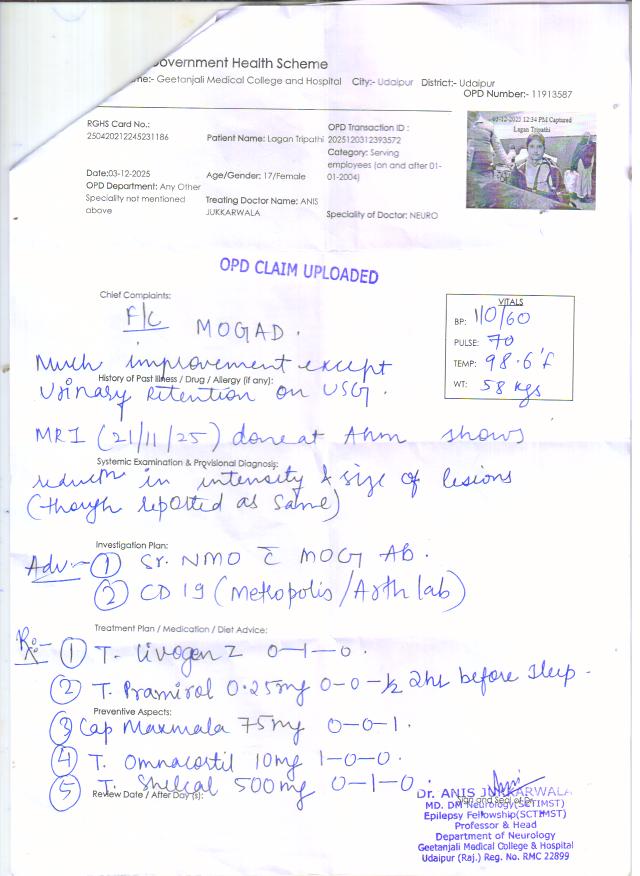 overnment Health Scheme
me:- Geetanjali Medical College and Hospital City:- Udaipur District:- Udaipur
OPD Number:- 11913587
RGHS Card No.:
250420212245231186
Patient Name: Lagan Tripathi
OPD Transaction ID :
2025120312393572
Category: Serving
employees (on and after 01-
01-2004)
-03-12-2025 12:34 PM Captured
Lagan Tripathi
Date:03-12-2025
OPD Department: Any Other
Speciality not mentioned
above
Age/Gender: 17/Female
Treating Doctor Name: ANIS
JUKKARWALA
Speciality of Doctor: NEURO
OPD CLAIM UPLOADED
Chief Complaints:
F/C MOGAD.
VITALS
BP: 110/60
PULSE: 70
TEMP: 98.6°F
WT: 58 kgs
Much improvement except
History of Past Illness / Drug / Allergy (if any):
Urinary Retention on USG.
MRI (21/11/25) done at Ahm shows
Systemic Examination & Provisional Diagnosis:
reductn in intensity & size of lesions
(though reported as same)
Investigation Plan:
Adv:- ① Sr. NMO c̄ MOG Ab.
② CD 19 (Metropolis/Arth lab)
Treatment Plan / Medication / Diet Advice:
Rx:- ① T. Livogen Z 0-1-0.
② T. Pramirol 0.25mg 0-0-½ 2hr before sleep.
Preventive Aspects:
③ Cap Maxmala 75mg 0-0-1.
④ T. Omnacortil 10mg 1-0-0.
⑤ T. Shelcal 500mg 0-1-0.
Review Date / After Day (s):
Dr. ANIS JUKKARWALA
Sign and Seal of Dr.
MD. DM Neurology(SCTIMST)
Epilepsy Fellowship(SCTIMST)
Professor & Head
Department of Neurology
Geetanjali Medical College & Hospital
Udaipur (Raj.) Reg. No. RMC 22899